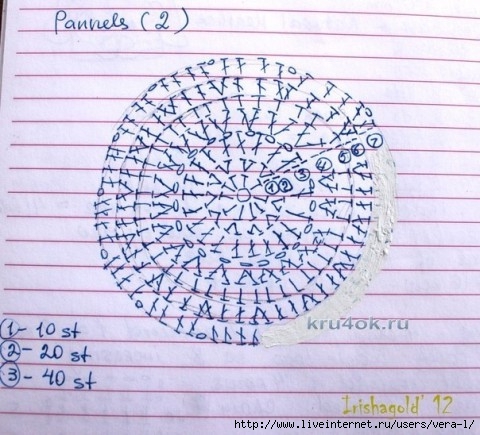 Pannels (2)
1 2 3 4 5 6 7
kru4ok.ru
1 - 10 st
2 - 20 st
3 - 40 st
Irishagold' 12
http://www.liveinternet.ru/users/vera-l/